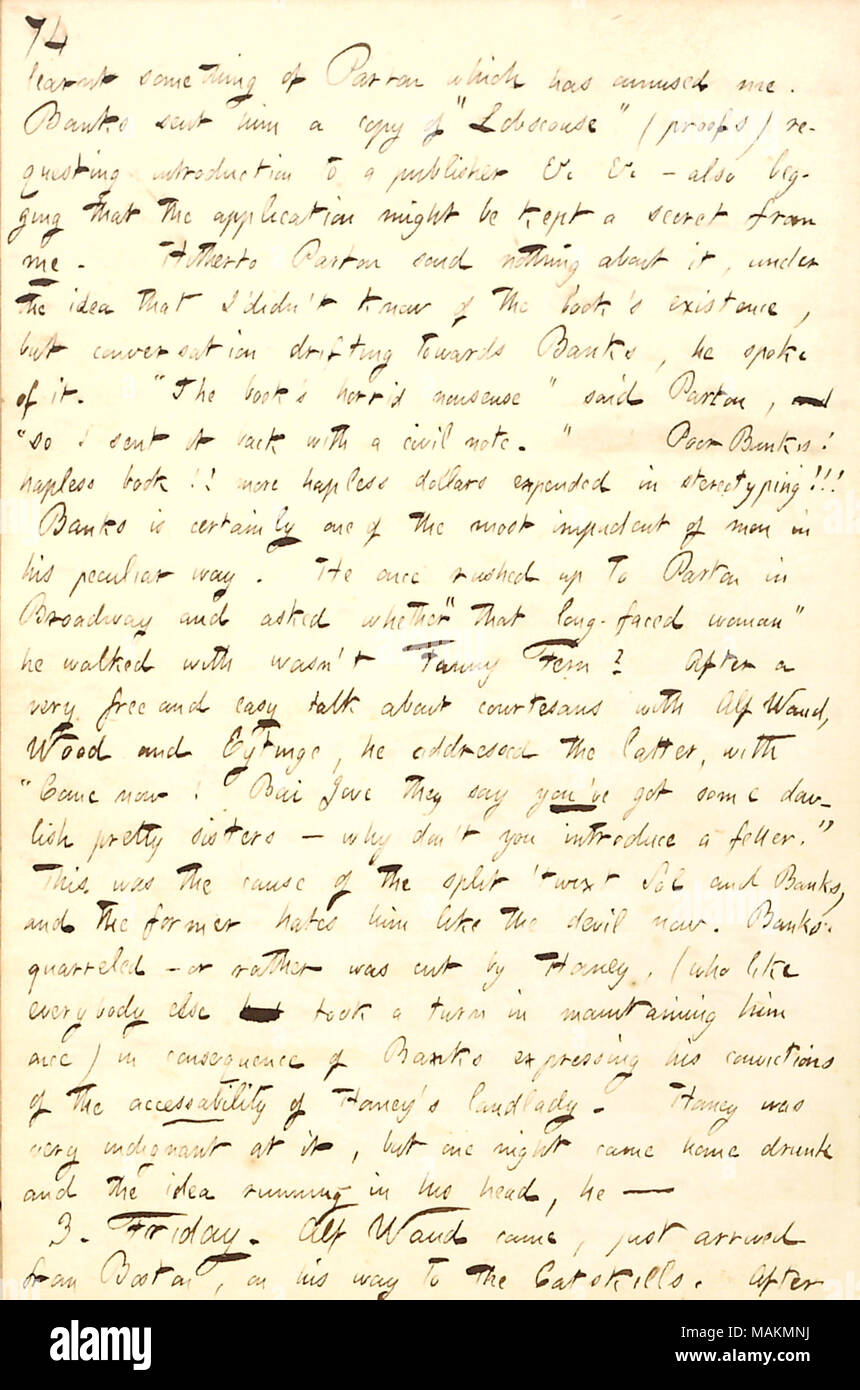 74
learnt something of Parton which has amused me.
Banks sent him a copy of "Lobscouse" (proofs) re-
questing introduction to a publisher &c &c - also beg-
ging that the application might be kept a secret from
me. Hitherto Parton said nothing about it, under
the idea that I didn't know of the book's existence,
but conversation drifting towards Banks, he spoke
of it. "The book's horrid nonsense" said Parton,
"so I sent it back with a civil note." Poor Banks!
hapless book!! more hapless dollars expended in stereotyping!!!
Banks is certainly one of the most impudent of men in
his peculiar way. He once rushed up to Parton in
Broadway and asked whether "that long-faced woman"
he walked with wasn't Fanny Fern? After a
very free and easy talk about courtesans with Alf Waud,
Wood and Eytinge, he addressed the latter, with
"Come now! Bai Jove they say you've got some dav-
lish pretty sisters - why don't you introduce a feller."
This was the cause of the split 'twixt Sol and Banks,
and the former hates him like the devil now. Banks
quarreled - or rather was cut by Haney, (who like
everybody else took a turn in maintaining him
once) in consequence of Banks expressing his convictions
of the accessability of Haney's landlady. Haney was
very indignant at it, but one night came home drunk
and the idea running in his head, he —
3. Friday. Alf Waud came, just arrived
from Boston, on his way to the Catskills. After
alamy
Image ID: MAKMNJ
www.alamy.com